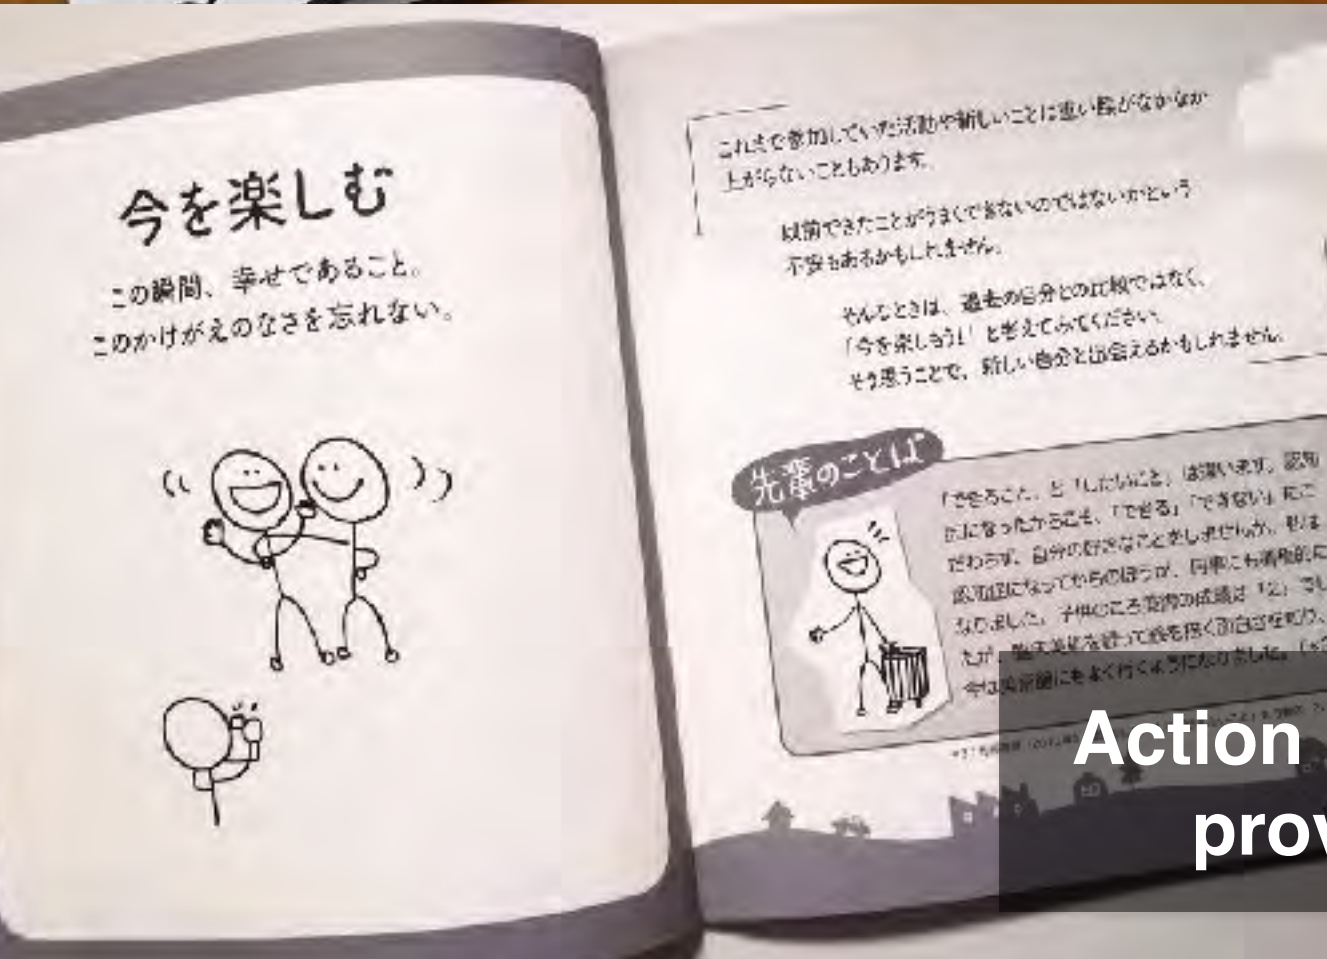 今を楽しむ
この瞬間、幸せであること。
このかけがえのなさを忘れない。
これまで参加していた活動や新しいことに重い腰がなかなか
上がらないこともあります。
以前できたことがうまくできないのではないかという
不安もあるかもしれません。
そんなときは、過去の自分との比較ではなく、
「今を楽しもう!」と考えてみてください。
そう思うことで、新しい自分と出会えるかもしれません。
先輩のことば
「できること」と「したいこと」は違います。認知
症になったからこそ、「できる」「できない」にこ
だわらず、自分の好きなことをしませんか。私は
認知症になってからのほうが、何事にも積極的に
なりました。子供のころ美術の成績は「2」でし
たが、
今は美術館にもよく行くようになりました。
Action
prov